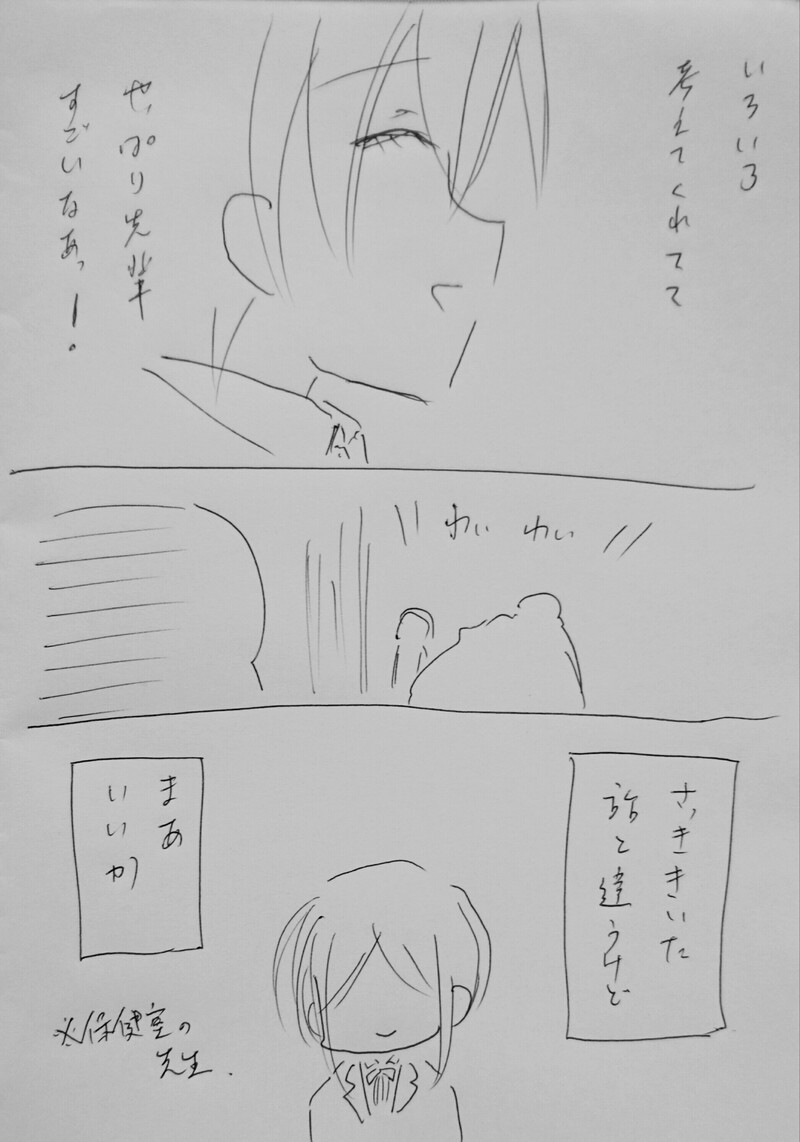 いろいろ
考えてくれてて
やっぱり先輩
すごいなあっ!
わい わい
さっききいた
話と違うけど
まあ
いいか
※保健室の
先生.